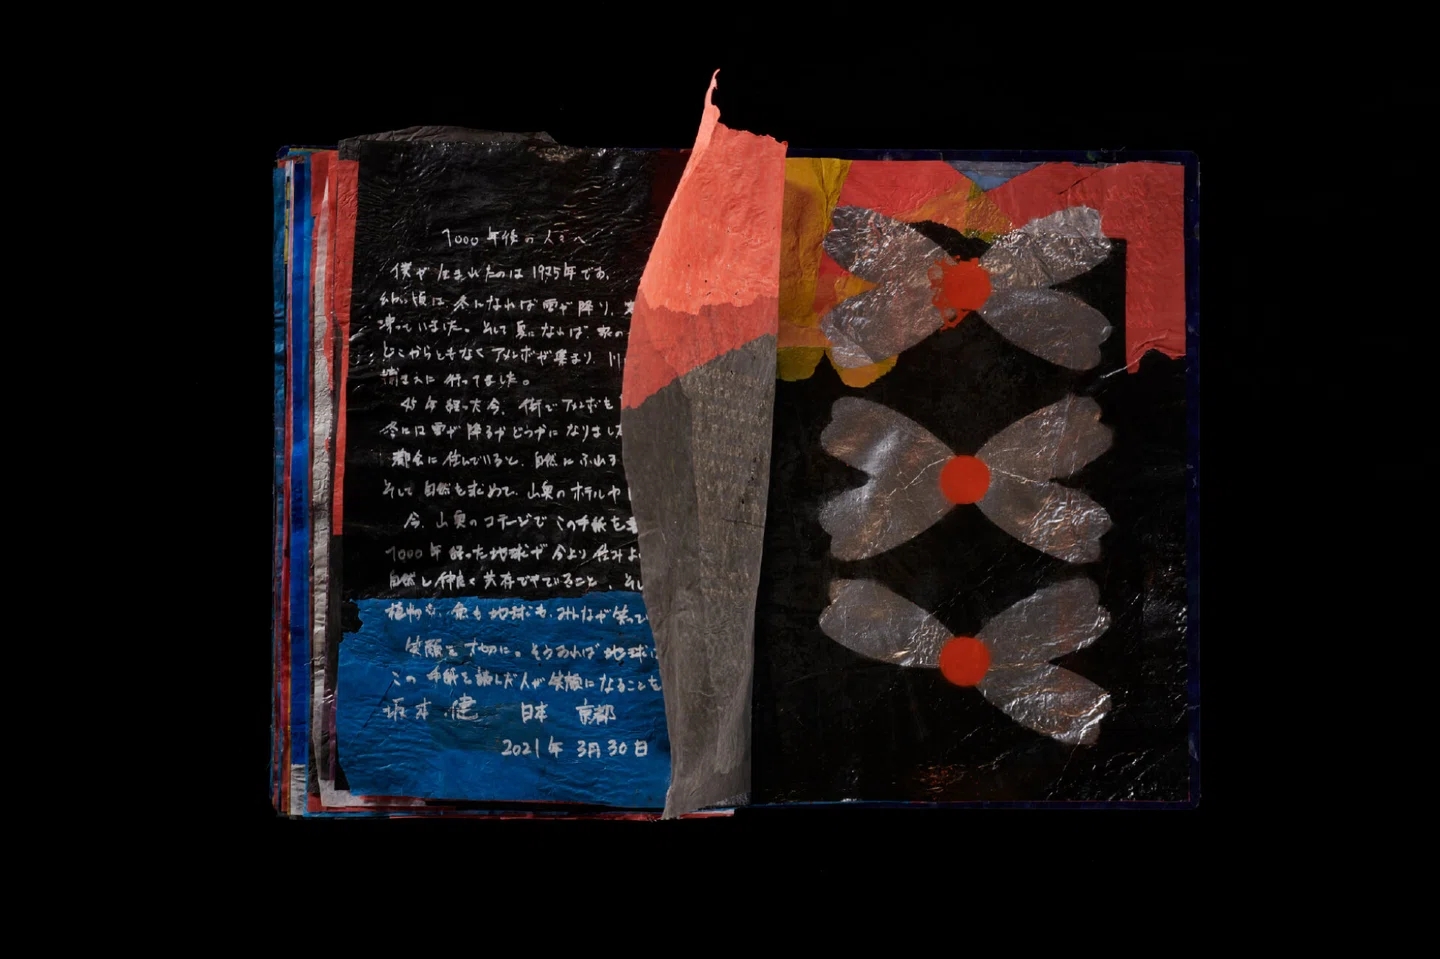 1000年後の人々へ
僕が生まれたのは1975年です。
幼い頃は、冬になれば雪が降り、
凍っていました。そして夏になれば、家の
どこからともなくアメンボが集まり、川
捕まえに行ってました。
45年経った今、街でアメンボも
冬には雪が降るかどうかになりました
都会に住んでいると、自然にふれ
そして自然を求めて、山奥のホテルや
今、山奥のコテージでこの手紙を書
1000年経った地球が今より住みよ
自然と仲良く共存できていること、そし
植物も、魚も地球も、みんなが笑って
笑顔を大切に。そうあれば地球は
この手紙を読んだ人が笑顔になることを
坂本 健 日本 京都
2021年 3月30日